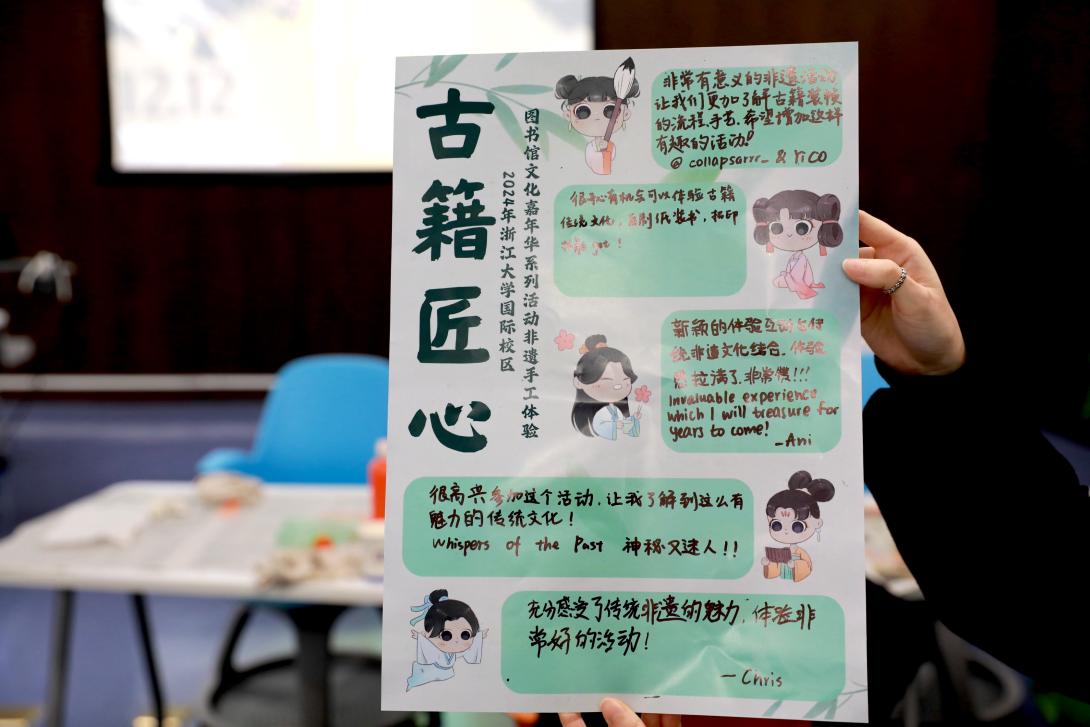 12.12
古籍匠心
图书馆文化嘉年华系列活动非遗手工体验
2024年浙江大学国际校区
非常有意义的非遗活动
让我们更加了解古籍装帧
的流程、手艺.希望增加这样
有趣的活动!
@ collapsarrr_ & YiCO
很开心有机会可以体验古籍
传统文化,自制纸装书,拓印
技能 get !
新颖的体验互动与传
统非遗文化结合.体验
感拉满了.非常棒!!!
Invaluable experience
which I will treasure for
years to come!
-Ani
很高兴参加这个活动,让我了解到这么有
魅力的传统文化!
Whispers of the Past 神秘又迷人!!
充分感受了传统非遗的魅力,体验非
常好的活动!
- Chris